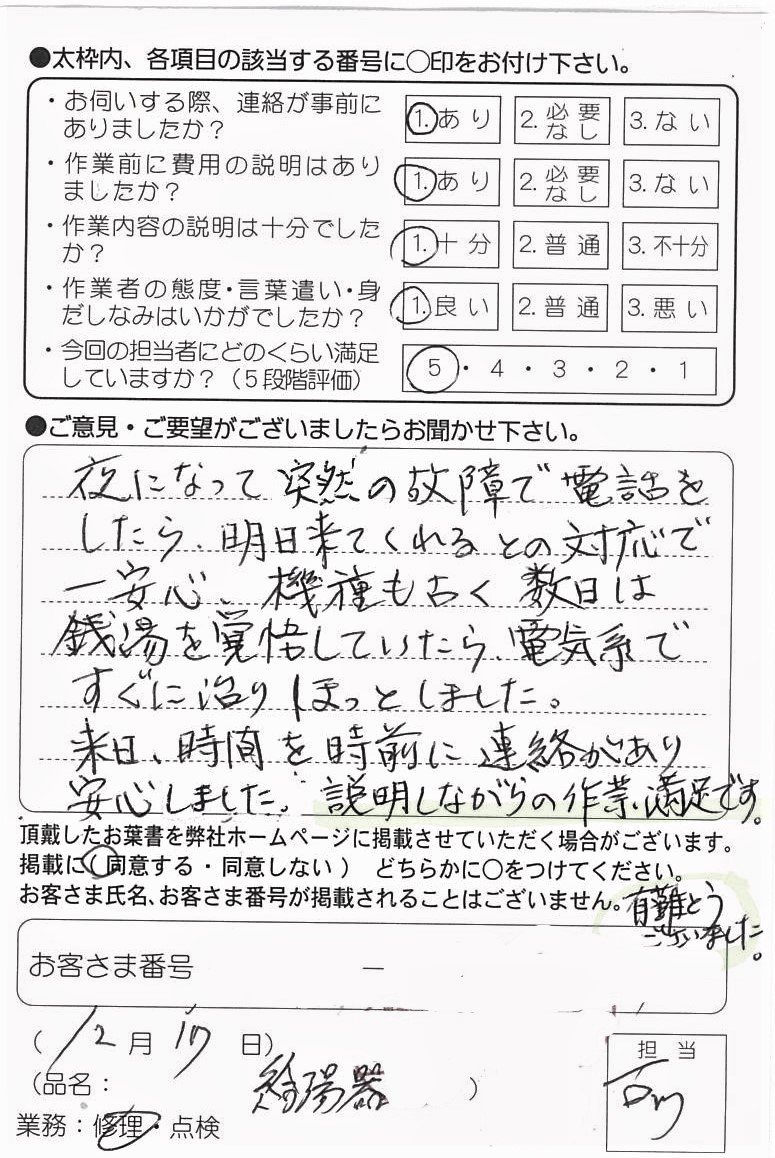 ●太枠内、各項目の該当する番号に○印をお付け下さい。
・お伺いする際、連絡が事前に
ありましたか？
1.あり 2.必要なし 3.ない
・作業前に費用の説明はあり
ましたか？
1.あり 2.必要なし 3.ない
・作業内容の説明は十分でした
か？
1.十分 2.普通 3.不十分
・作業者の態度・言葉遣い・身
だしなみはいかがでしたか？
1.良い 2.普通 3.悪い
・今回の担当者にどのくらい満足
していますか？（5段階評価）
5・4・3・2・1
●ご意見・ご要望がございましたらお聞かせ下さい。
夜になって突然の故障で電話を
したら、明日来てくれるとの対応で
一安心、機種も古く数日は
銭湯を覚悟していたら、電気系で
すぐに治りほっとしました。
来日、時間を時前に連絡があり
安心しました。説明しながらの作業、満足です。
頂戴したお葉書を弊社ホームページに掲載させていただく場合がございます。
掲載に（同意する・同意しない） どちらかに○をつけてください。
お客さま氏名、お客さま番号が掲載されることはございません。
有難とう
ございました。
お客さま番号 －
（12月17日）
（品名：給湯器）
業務：修理・点検
担当